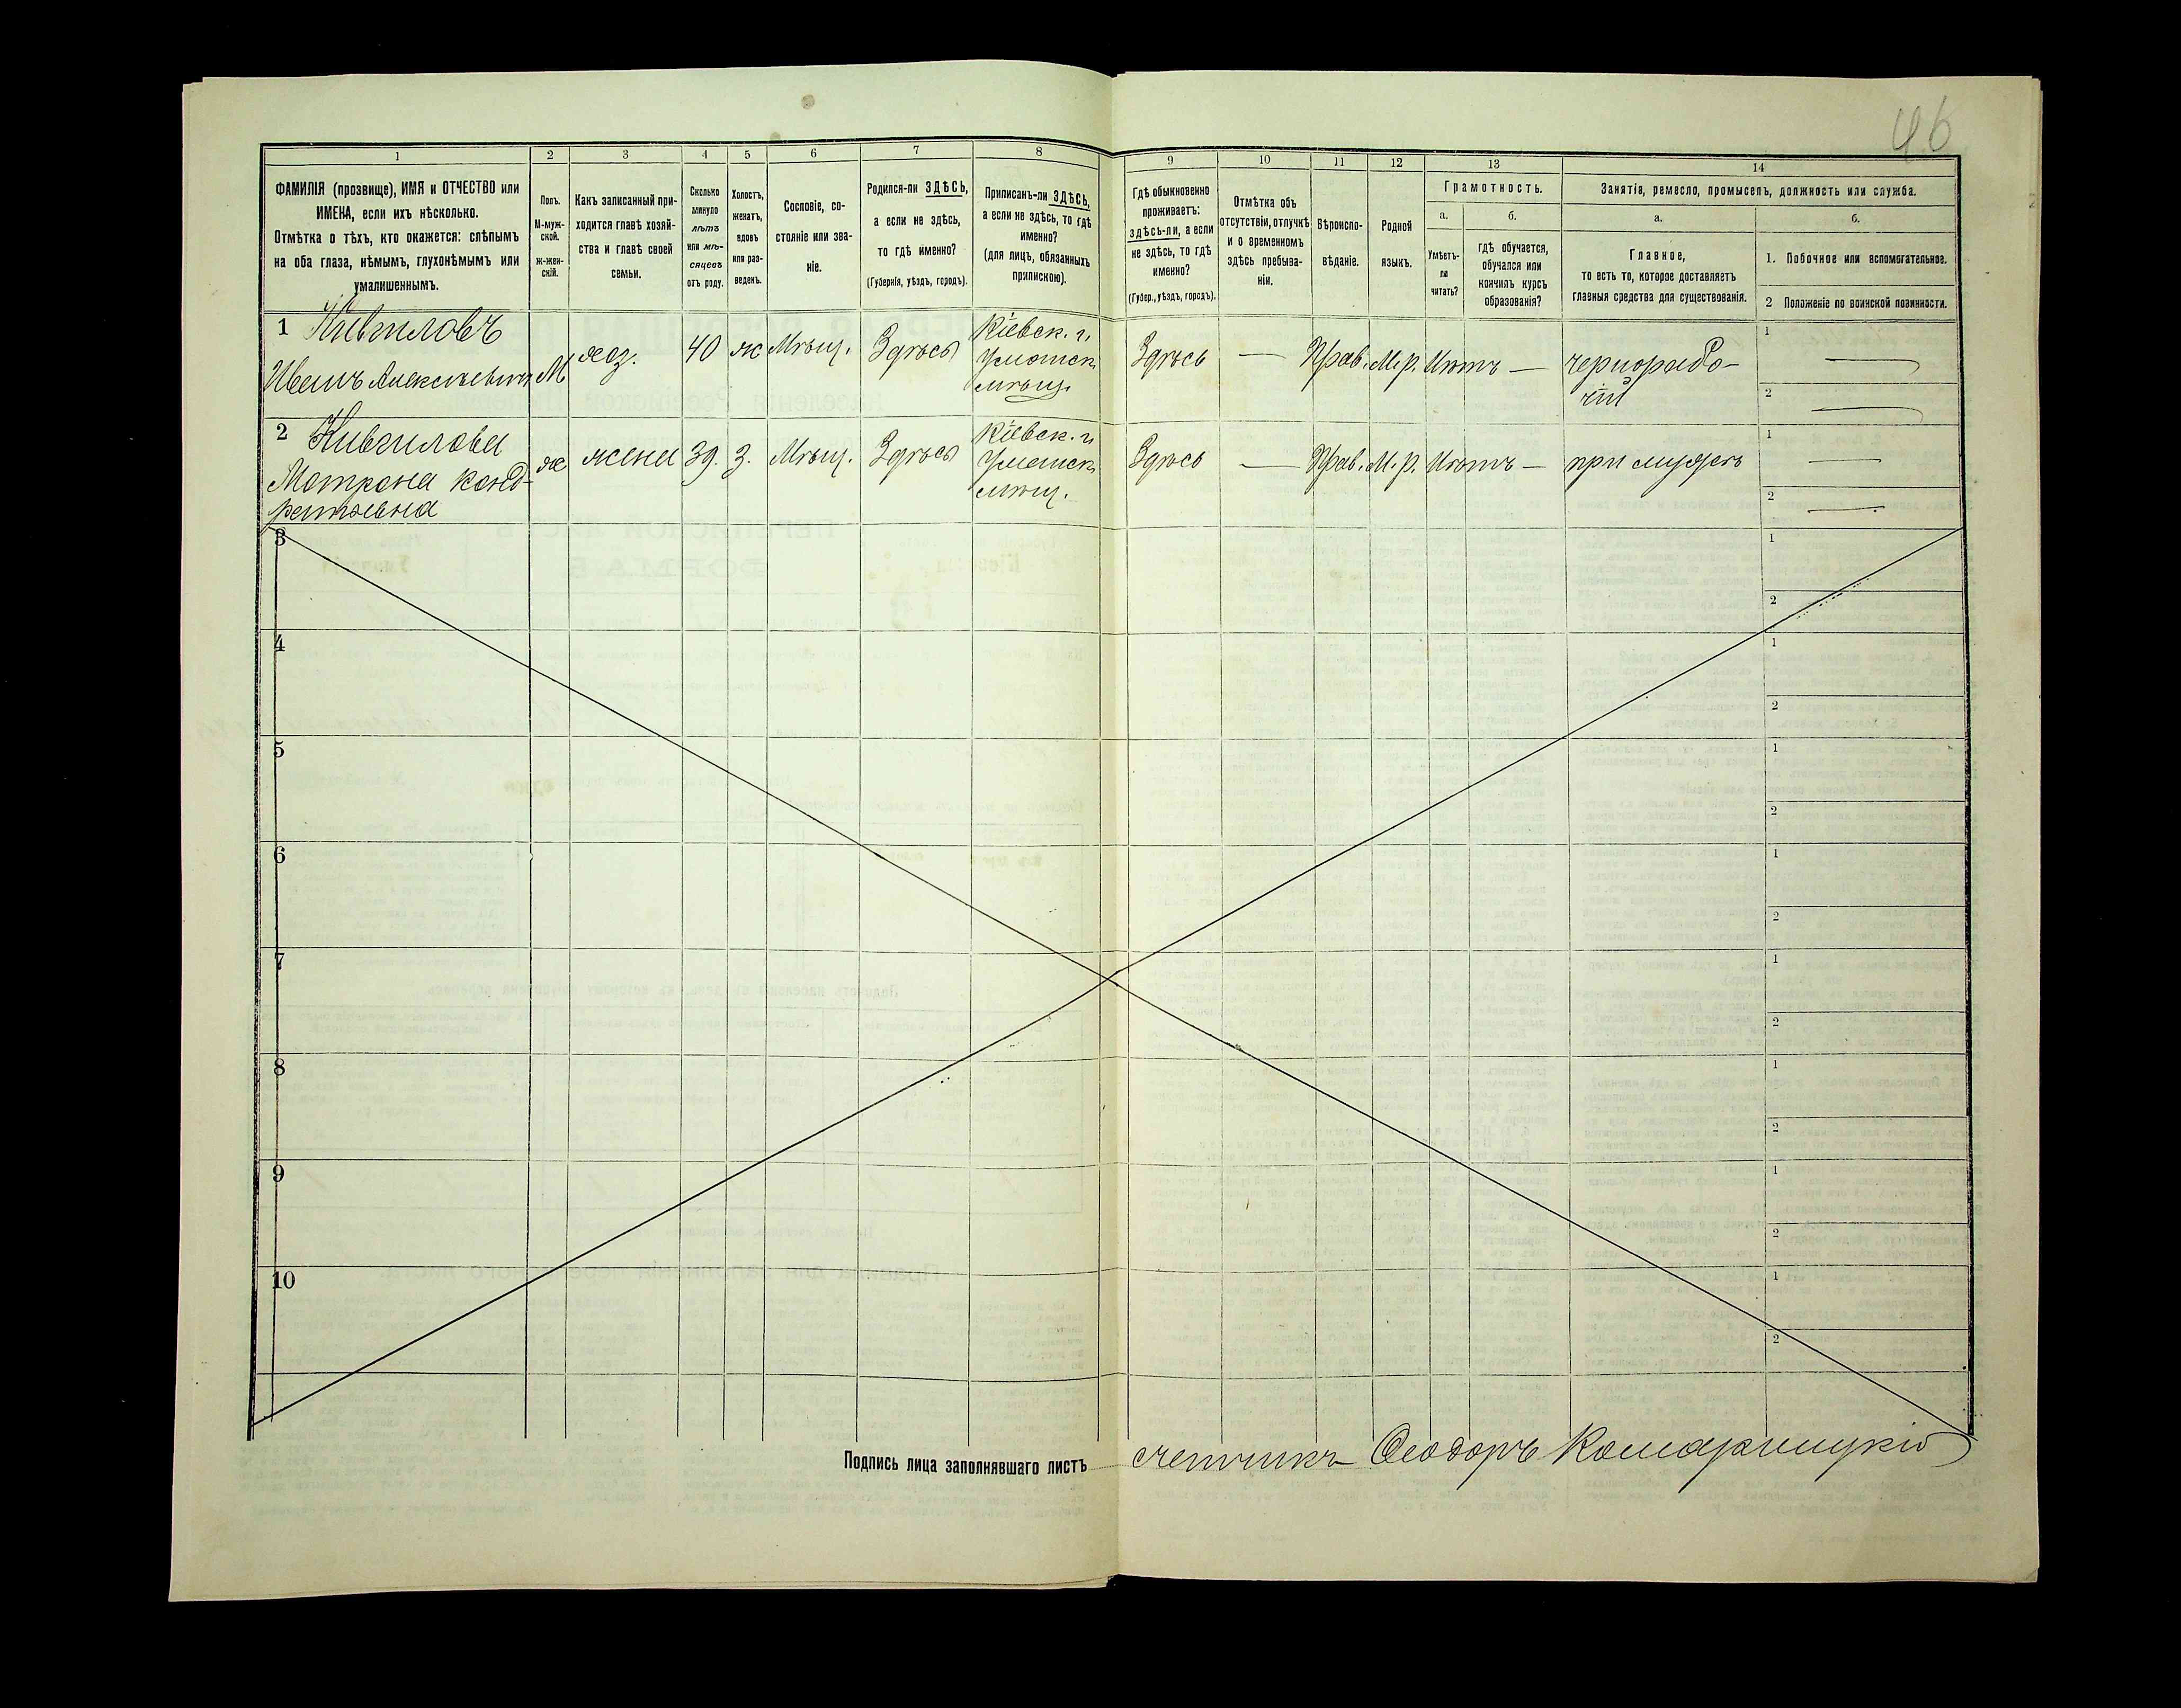 46
1 2 3 4 5 6 7 8 9 10 11 12 13 14
ФАМИЛІЯ (прозвище), ИМЯ и ОТЧЕСТВО или
ИМЕНА, если ихъ нѣсколько.
Отмѣтка о тѣхъ, кто окажется: слѣпымъ
на оба глаза, нѣмымъ, глухонѣмымъ или
умалишеннымъ.
Полъ.
М-муж-
ской.
ж-жен-
скій.
Какъ записанный при-
ходится главѣ хозяй-
ства и главѣ своей
семьи.
Сколько
минуло
лѣтъ
или мѣ-
сяцевъ
отъ роду.
Холостъ,
женатъ,
вдовъ
или раз-
веденъ.
Сословіе, со-
стояніе или зва-
ніе.
Родился-ли ЗДѢСЬ,
а если не здѣсь,
то гдѣ именно?
(Губернія, уѣздъ, городъ).
Приписанъ-ли ЗДѢСЬ,
а если не здѣсь, то гдѣ
именно?
(для лицъ, обязанныхъ
припискою).
Гдѣ обыкновенно
проживаетъ:
здѣсь-ли, а если
не здѣсь, то гдѣ
именно?
(Губер., уѣздъ, городъ).
Отмѣтка объ
отсутствіи, отлучкѣ
и о временномъ
здѣсь пребыва-
ніи.
Вѣроиспо-
вѣданіе.
Родной
языкъ.
Грамотность.
а.
Умѣетъ-
ли
читать?
б.
гдѣ обучается,
обучался или
кончилъ курсъ
образованія?
Занятіе, ремесло, промыселъ, должность или служба.
а.
Главное,
то есть то, которое доставляетъ
главныя средства для существованія.
б.
1. Побочное или вспомогательное.
2 Положеніе по воинской повинности.
1
Иванъ Алексѣевичъ
М
хоз.
40
ж
Мѣщ.
Здѣсь
Кіевск. г.
Уманск
мѣщ.
Здѣсь
—
Прав.
М.р.
Нѣтъ
—
чернорабо-
чій
1 —
2 —
2
Матрона Конд-
ратьевна
ж
жена
39.
З.
Мѣщ.
Здѣсь
Кіевск. г.
Уманск
мѣщ.
Здѣсь
—
Прав.
М.р.
Нѣтъ
—
при мужѣ
1 —
2 —
3 1
2
4 1
2
5 1
2
6 1
2
7 1
2
8 1
2
9 1
2
10 1
2
Подпись лица заполнявшаго листъ счетчикъ Ѳеодоръ Комарницкій